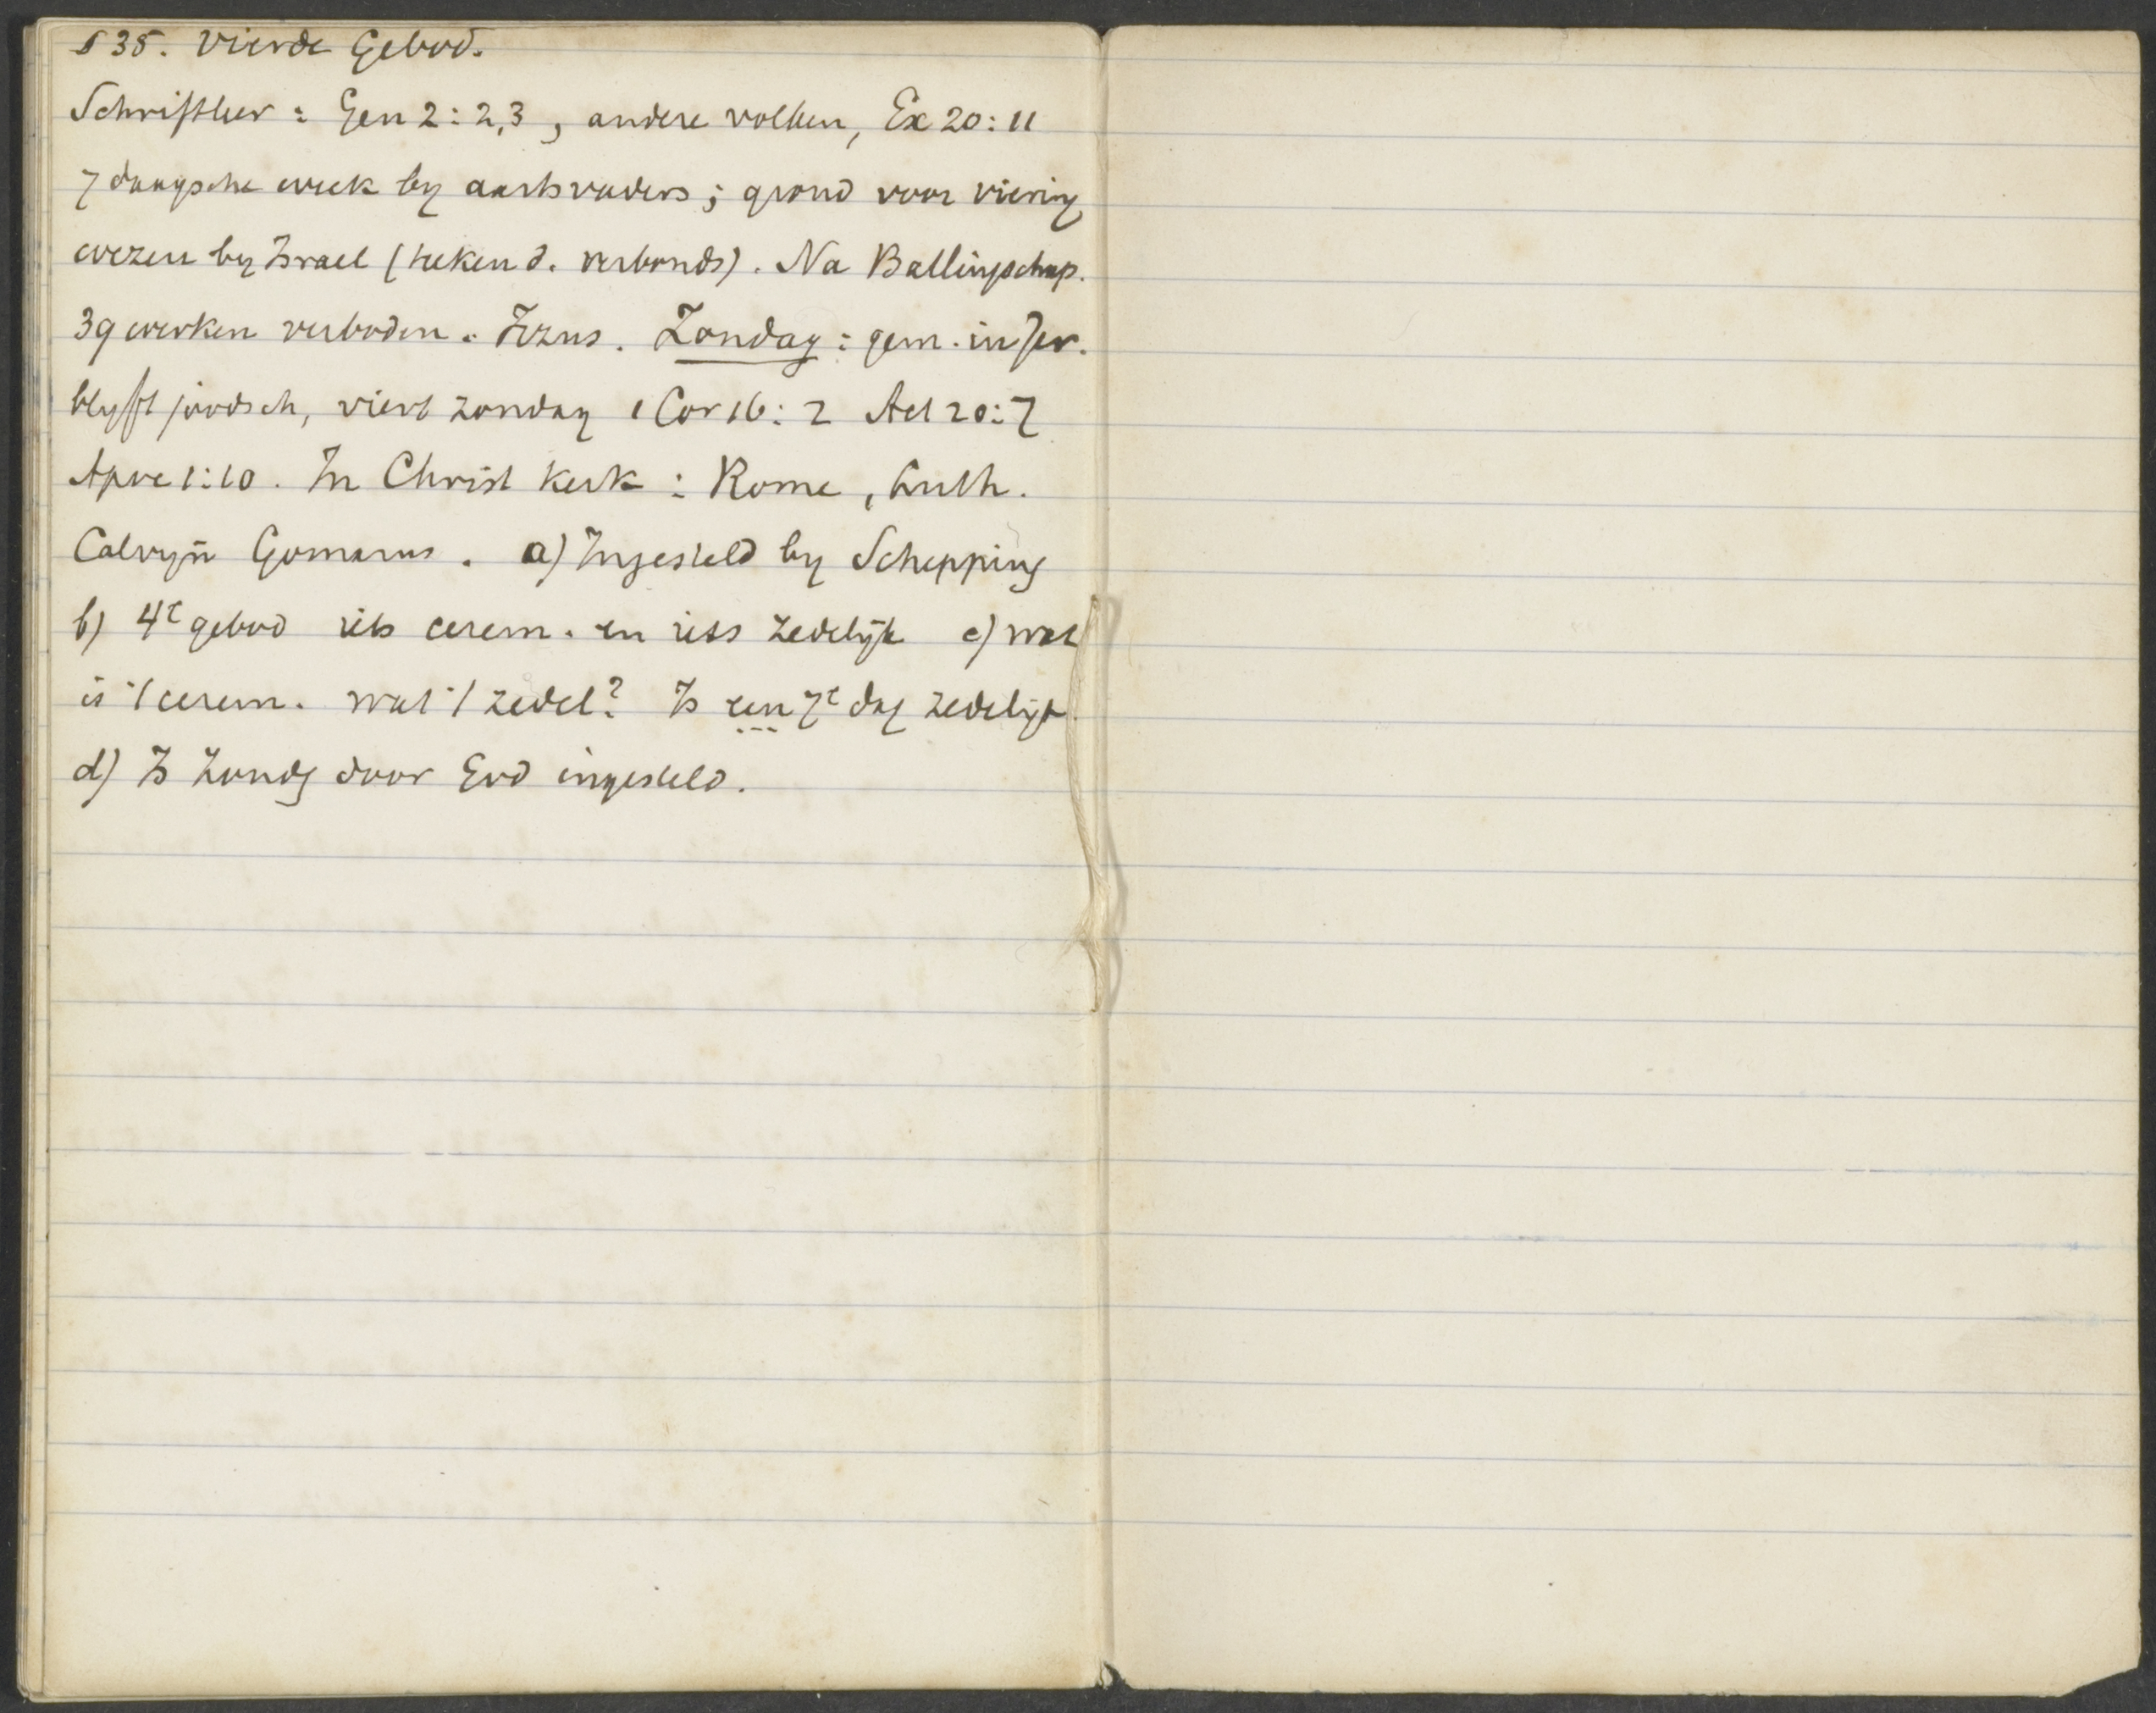 § 35. Vierde Gebod.
Schriftleer : Gen 2 : 2,3 , andere volken, Ex 20 : 11
7 daagsche week by aartsvaders ; grond voor viering
wezen by Israel (teken d. verbonds) . Na Ballingschap.
39 werken verboden . Jezus . Zondag : gem. in Jer.
blyft joodsch, viert zondag 1 Cor 16 : 2 Act 20 : 7
Apoc 1:10 . In Christ kerk : Rome , Luth.
Calvyn Gomarus . a) Ingesteld by Schepping
b) 4e gebod iets cerem. en iets zedelijk c) wat
is 't cerem. wat 't zedel? Is een 7e dag zedelijk
d) Is Zondg door God ingesteld.